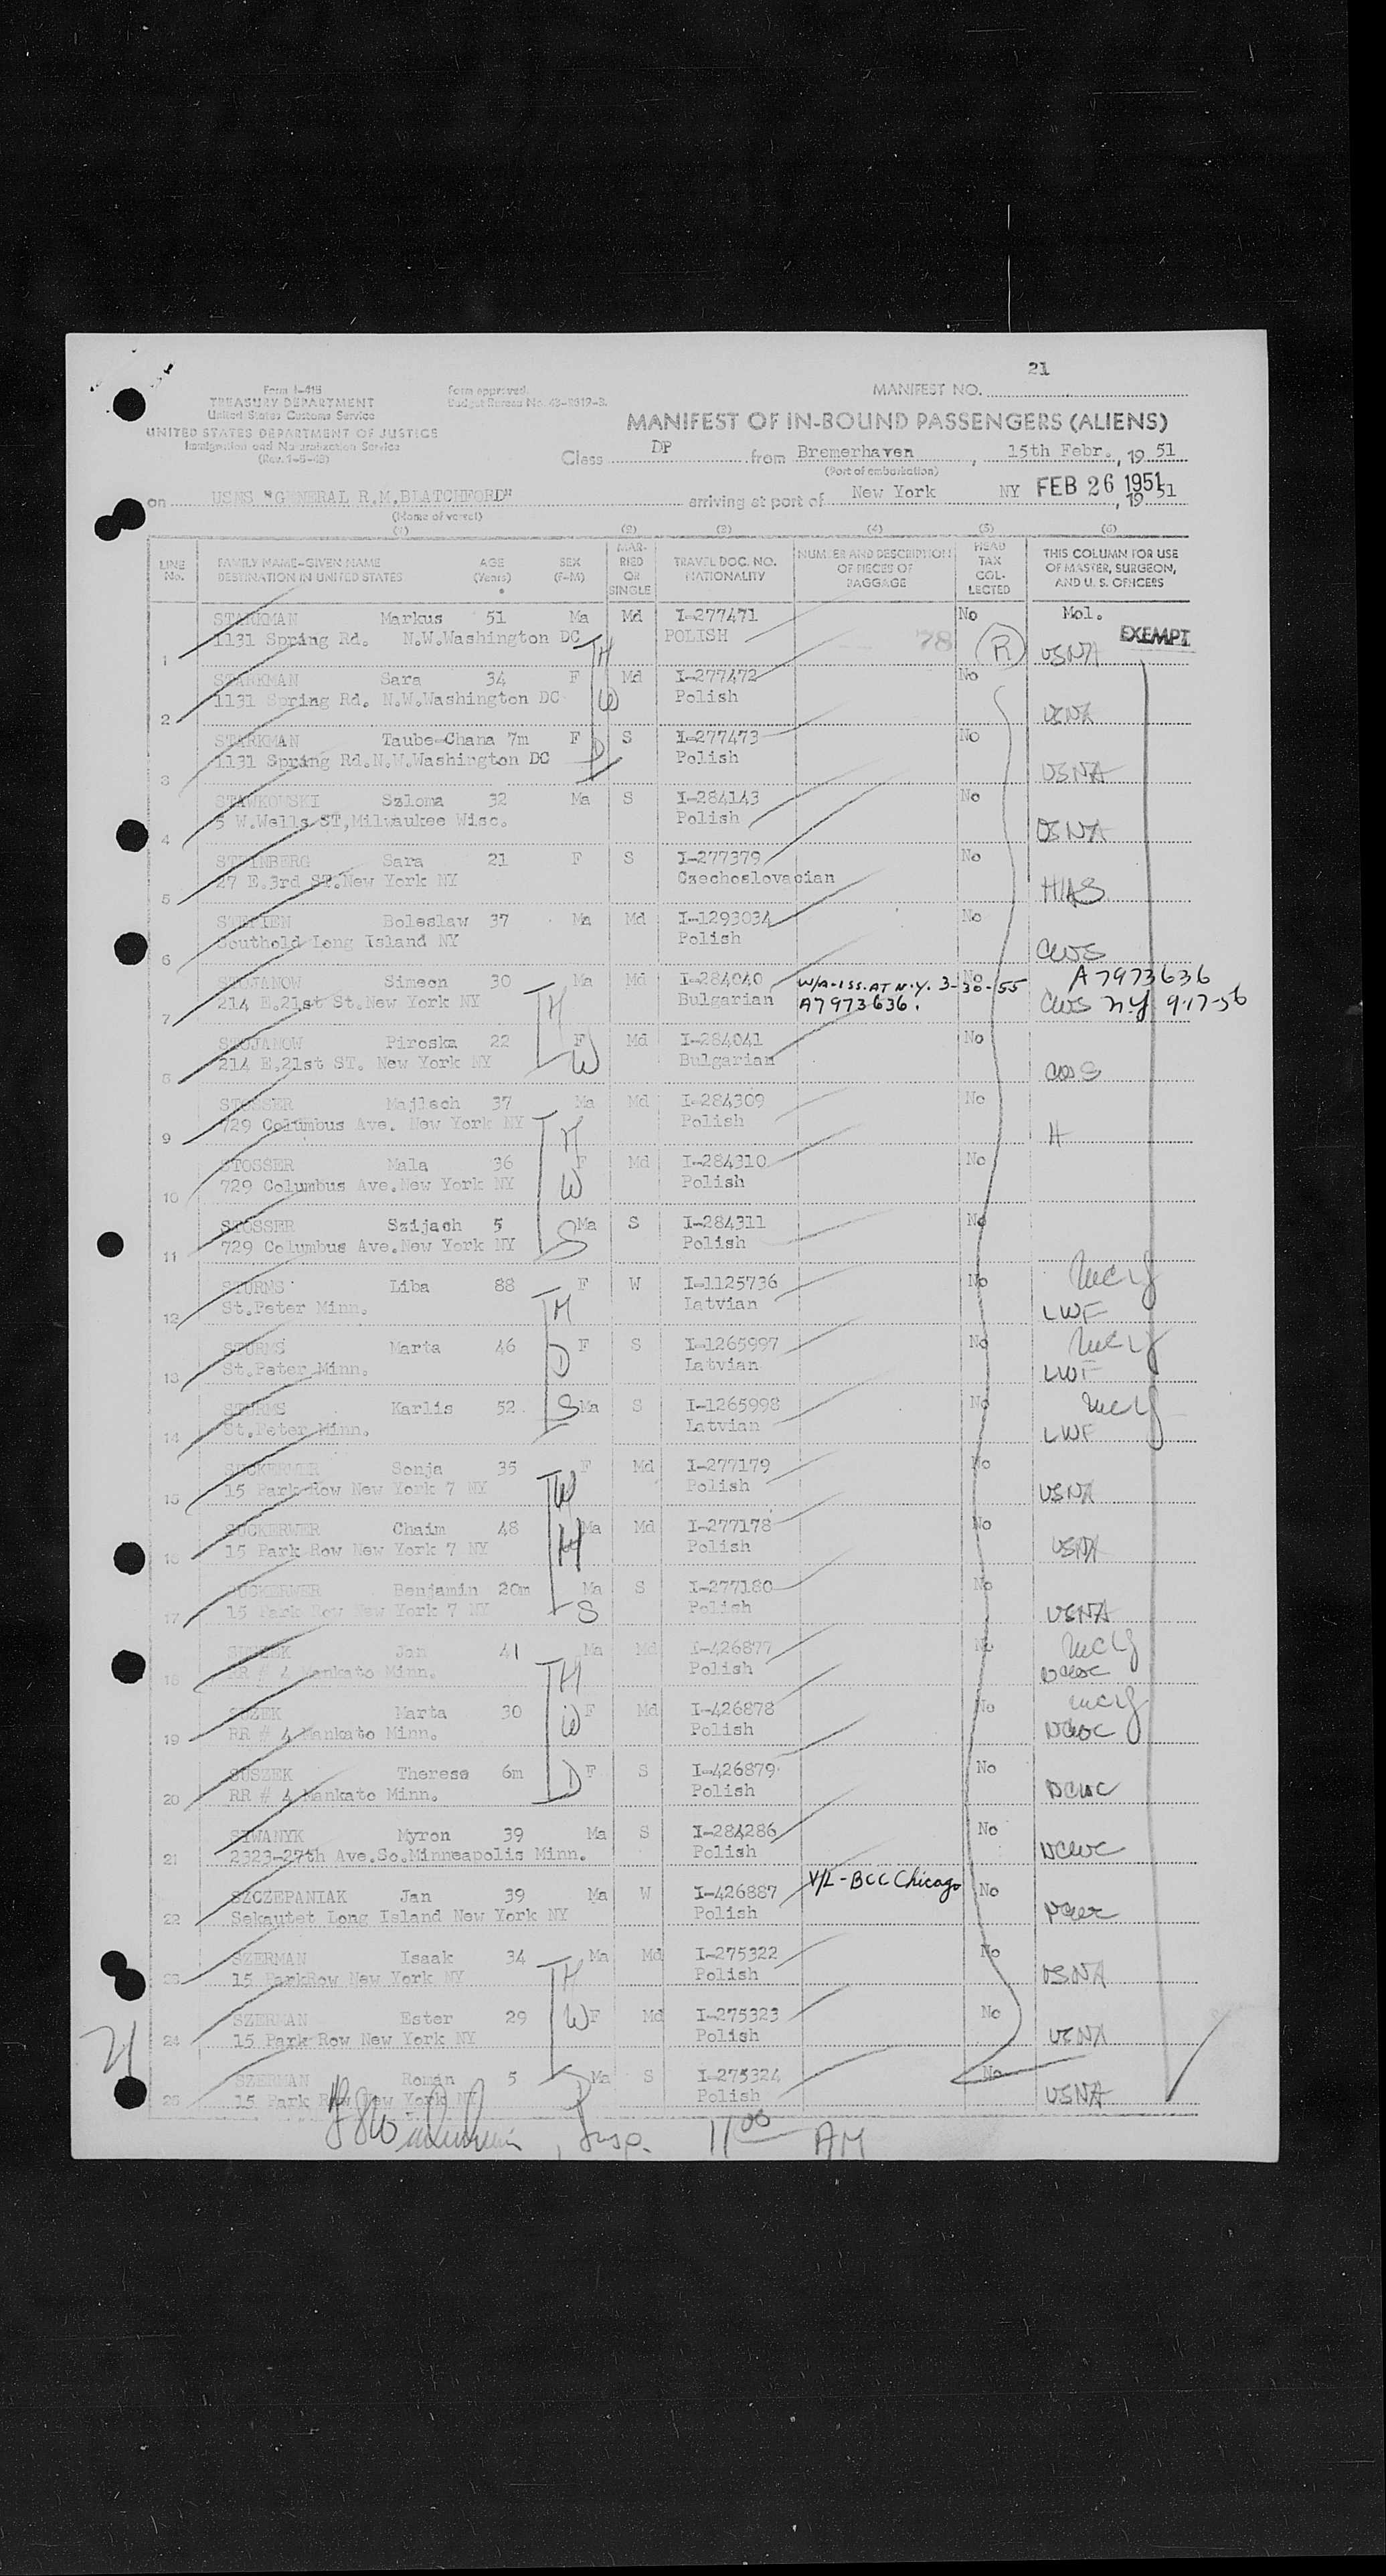 21
Form I-418
TREASURY DEPARTMENT
United States Customs Service
UNITED STATES DEPARTMENT OF JUSTICE
Immigration and Naturalization Service
(Rev. 1-5-48)
Form approved.
Budget Bureau No.
MANIFEST NO.
MANIFEST OF IN-BOUND PASSENGERS (ALIENS)
Class DP from Bremerhaven, 15th Febr., 19 51
(Port of embarkation)
on USNS "GENERAL R.M.BLATCHFORD" arriving at port of New York NY FEB 26 1951, 19 51
(Name of vessel)
(1) (2) (3) (4) (5) (6)
LINE No. FAMILY NAME–GIVEN NAME DESTINATION IN UNITED STATES AGE (Years) SEX (F-M) MARRIED OR SINGLE TRAVEL DOC. NO. NATIONALITY NUMBER AND DESCRIPTION OF PIECES OF BAGGAGE HEAD TAX COLLECTED THIS COLUMN FOR USE OF MASTER, SURGEON, AND U. S. OFFICERS
STARKMAN Markus 51 Ma Md I-277471 No Mol. EXEMPT
1 1131 Spring Rd. N.W.Washington DC H POLISH 78 R USNA
STARKMAN Sara 34 F Md I-277472 No
2 1131 Spring Rd. N.W.Washington DC W Polish USNA
STARKMAN Taube-Chana 7m F S I-277473 No
3 1131 Spring Rd.N.W.Washington DC D Polish USNA
STAWKOWSKI Szloma 32 Ma S I-284143 No
4 5 W.Wells ST,Milwaukee Wisc. Polish USNA
STEINBERG Sara 21 F S I-277379 No
5 27 E.3rd ST.New York NY Czechoslovacian HIAS
STEPIEN Boleslaw 37 Ma Md I-1293034 No
6 Southold Long Island NY Polish CWS
STOJANOW Simeon 30 Ma Md I-284040 W/A-ISS.AT N.Y. 3-30-55 No A7973636
7 214 E.21st St.New York NY H Bulgarian A7973636. CWS N.Y. 9-17-56
STOJANOW Piroska 22 F Md I-284041 No
8 214 E.21st ST. New York NY W Bulgarian CWS
STOSSER Majlech 37 Ma Md I-284309 No
9 729 Columbus Ave. New York NY H Polish H
STOSSER Mala 36 F Md I-284310 No
10 729 Columbus Ave.New York NY W Polish
STOSSER Szijach 5 Ma S I-284311 No
11 729 Columbus Ave.New York NY S Polish
STURMS Liba 88 F W I-1125736 No
12 St.Peter Minn. M Latvian LWF
STURMS Marta 46 F S I-1265997 No
13 St.Peter Minn. D Latvian LWF
STURMS Karlis 52 S Ma S I-1265998 No
14 St.Peter Minn. Latvian LWF
SUCKERWER Sonja 35 F Md I-277179 No
15 15 Park Row New York 7 NY W Polish USNA
SUCKERWER Chaim 48 Ma Md I-277178 No
16 15 Park Row New York 7 NY H Polish USNA
SUCKERWER Benjamin 20m Ma S I-277180 No
17 15 Park Row New York 7 NY S Polish USNA
SUSZEK Jan 41 Ma Md I-426877 No
18 RR # 4 Mankato Minn. H Polish NCWC
SUZEK Marta 30 F Md I-426878 No
19 RR # 4 Mankato Minn. W Polish NCWC
SUSZEK Theresa 6m D F S I-426879 No
20 RR # 4 Mankato Minn. Polish NCWC
SIWANYK Myron 39 Ma S I-284286 No
21 2323-27th Ave.So.Minneapolis Minn. Polish NCWC
SZCZEPANIAK Jan 39 Ma W I-426887 V/L-BCC Chicago No
22 Sekautet Long Island New York NY Polish NCWC
SZERMAN Isaak 34 Ma Md I-275322 No
23 15 ParkRow New York NY H Polish USNA
SZERMAN Ester 29 W F Md I-275323 No
24 15 Park Row New York NY Polish USNA
SZERMAN Roman 5 Ma S I-275324 No
25 15 Park Row New York NY S Polish USNA
21
Insp. 11 00 AM